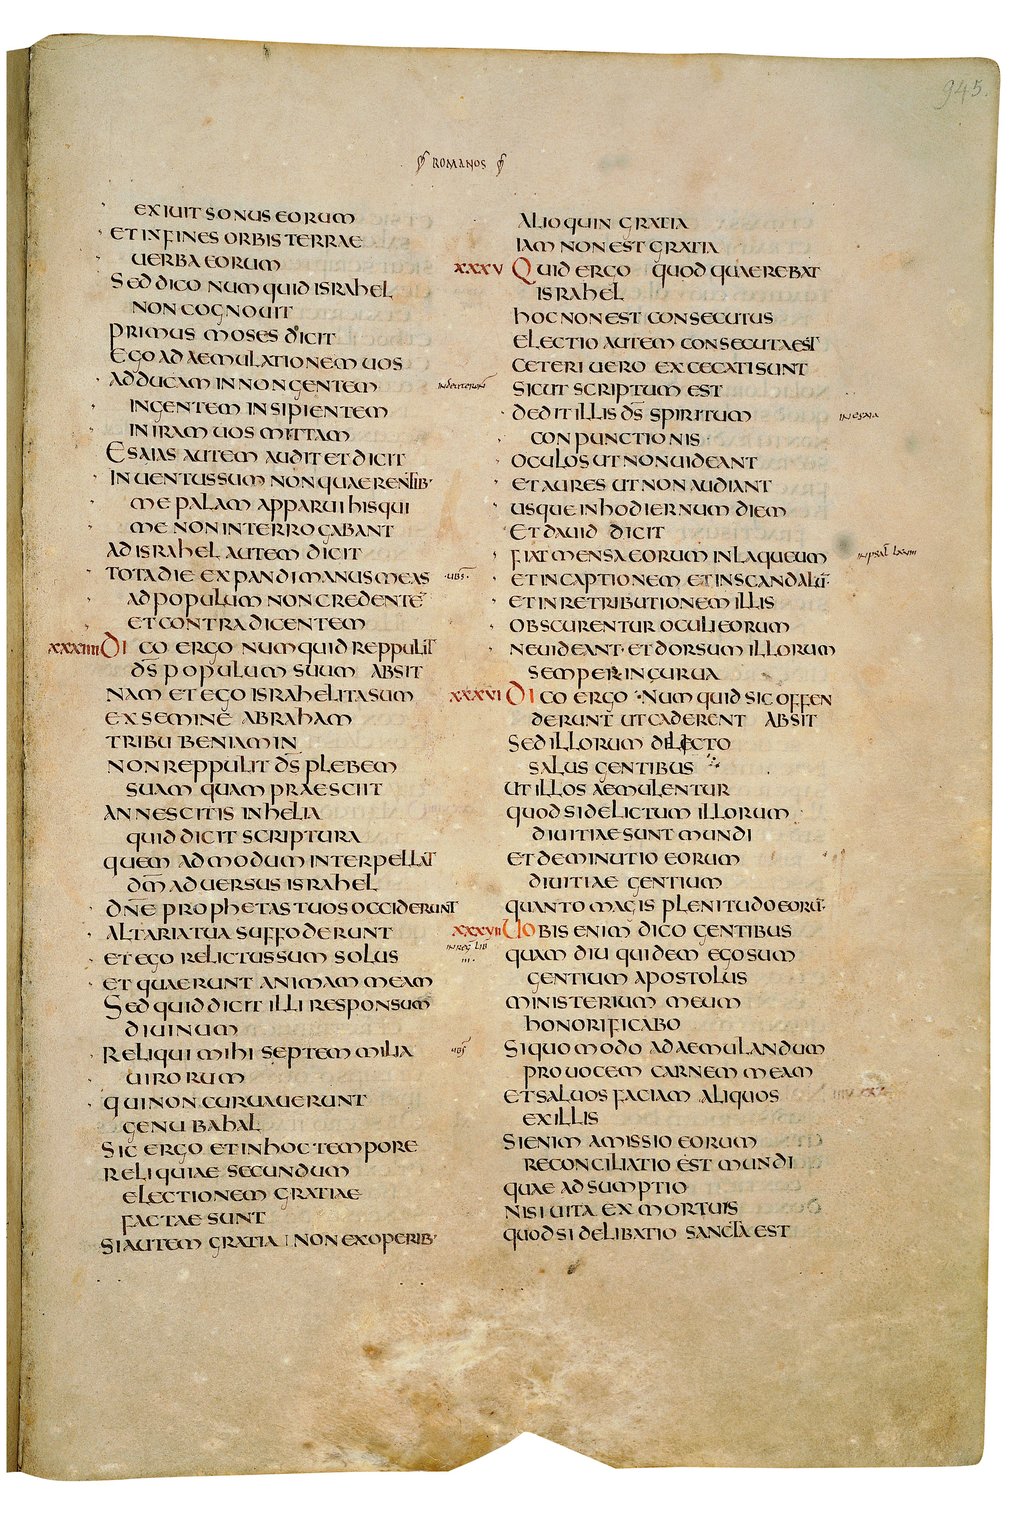 945.
ROMANOS
EXIUIT SONUS EORUM
ET IN FINES ORBIS TERRAE
UERBA EORUM
SED DICO NUMQUID ISRAHEL
NON COGNOUIT
PRIMUS MOSES DICIT
EGO AD AEMULATIONEM UOS
ADDUCAM IN NON GENTEM
INGENTEM INSIPIENTEM
IN IRAM UOS MITTAM
ESAIAS AUTEM AUDIT ET DICIT
INUENTUS SUM NON QUAERENTIB·
ME PALAM APPARUI HIS QUI
ME NON INTERROGABANT
AD ISRAHEL AUTEM DICIT
TOTA DIE EXPANDI MANUS MEAS
AD POPULUM NON CREDENTĒ
ET CONTRADICENTEM
XXXIIII DICO ERGO NUMQUID REPPULIT
D̄S POPULUM SUUM ABSIT
NAM ET EGO ISRAHELITA SUM
EX SEMINE ABRAHAM
TRIBU BENIAMIN
NON REPPULIT D̄S PLEBEM
SUAM QUAM PRAESCIIT
AN NESCITIS IN HELIA
QUID DICIT SCRIPTURA
QUEM AD MODUM INTERPELLAT
D̄M ADUERSUS ISRAHEL
DN̄E PROPHETAS TUOS OCCIDERUNT
ALTARIA TUA SUFFODERUNT
ET EGO RELICTUS SUM SOLUS
ET QUAERUNT ANIMAM MEAM
SED QUID DICIT ILLI RESPONSUM
DIUINUM
RELIQUI MIHI SEPTEM MILIA
UIRORUM
QUI NON CURUAUERUNT
GENU BAHAL
SIC ERGO ET IN HOC TEMPORE
RELIQUIAE SECUNDUM
ELECTIONEM GRATIAE
FACTAE SUNT
SI AUTEM GRATIA NON EX OPERIB·
IN REG LIB
III·
ALIOQUIN GRATIA
IAM NON EST GRATIA
XXXV QUID ERGO QUOD QUAEREBAT
ISRAHEL
HOC NON EST CONSECUTUS
ELECTIO AUTEM CONSECUTA EST
CETERI UERO EXCECATI SUNT
SICUT SCRIPTUM EST
DEDIT ILLIS D̄S SPIRITUM
CONPUNCTIONIS
OCULOS UT NON UIDEANT
ET AURES UT NON AUDIANT
USQUE IN HODIERNUM DIEM
ET DAUID DICIT
FIAT MENSA EORUM IN LAQUEUM
ET IN CAPTIONEM ET IN SCANDALŪ·
ET IN RETRIBUTIONEM ILLIS
OBSCURENTUR OCULI EORUM
NE UIDEANT· ET DORSUM ILLORUM
SEMPER INCURUA
XXXVI DICO ERGO NUMQUID SIC OFFEN
DERUNT UT CADERENT ABSIT
SED ILLORUM DELICTO
SALUS GENTIBUS
UT ILLOS AEMULENTUR
QUOD SI DELICTUM ILLORUM
DIUITIAE SUNT MUNDI
ET DEMINUTIO EORUM
DIUITIAE GENTIUM
QUANTO MAGIS PLENITUDO EORŪ·
XXXVII UOBIS ENIM DICO GENTIBUS
QUAM DIU QUIDEM EGO SUM
GENTIUM APOSTOLUS
MINISTERIUM MEUM
HONORIFICABO
SI QUOMODO AD AEMULANDUM
PROUOCEM CARNEM MEAM
ET SALUOS FACIAM ALIQUOS
EX ILLIS
SI ENIM AMISSIO EORUM
RECONCILIATIO EST MUNDI
QUAE ADSUMPTIO
NISI UITA EX MORTUIS
QUOD SI DELIBATIO SANCTA EST
IN ESAIA